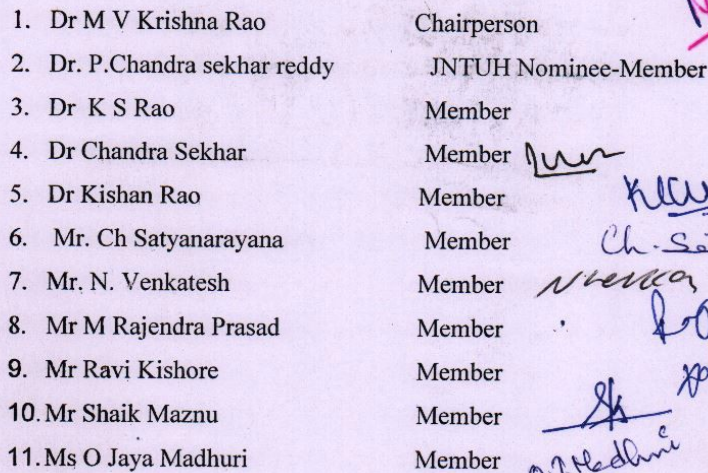 1. Dr M V Krishna Rao Chairperson
2. Dr. P.Chandra sekhar reddy JNTUH Nominee-Member
3. Dr K S Rao Member
4. Dr Chandra Sekhar Member
5. Dr Kishan Rao Member
6. Mr. Ch Satyanarayana Member Ch.
7. Mr. N. Venkatesh Member
8. Mr M Rajendra Prasad Member
9. Mr Ravi Kishore Member
10. Mr Shaik Maznu Member
11. Ms O Jaya Madhuri Member